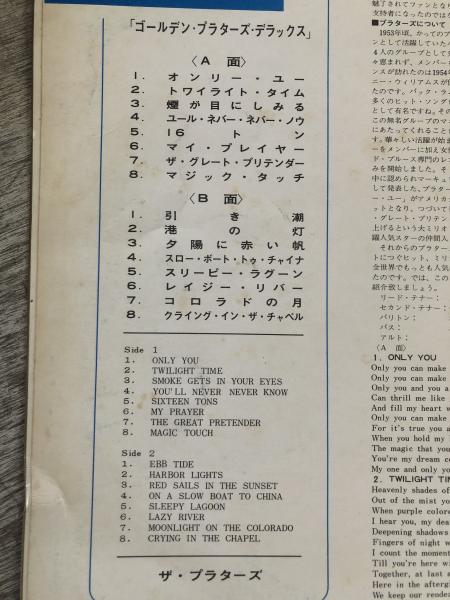 「ゴールデン・プラターズ・デラックス」
〈A 面〉
1. オンリー・ユー
2. トワイライト・タイム
3. 煙が目にしみる
4. ユール・ネバー・ネバー・ノウ
5. 16トン
6. マイ・プレイヤー
7. ザ・グレート・プリテンダー
8. マジック・タッチ
〈B 面〉
1. 引き潮
2. 港の灯
3. 夕陽に赤い帆
4. スロー・ボート・トゥ・チャイナ
5. スリーピー・ラグーン
6. レイジー・リバー
7. コロラドの月
8. クライング・イン・ザ・チャペル
Side 1
1. ONLY YOU
2. TWILIGHT TIME
3. SMOKE GETS IN YOUR EYES
4. YOU'LL NEVER NEVER KNOW
5. SIXTEEN TONS
6. MY PRAYER
7. THE GREAT PRETENDER
8. MAGIC TOUCH
Side 2
1. EBB TIDE
2. HARBOR LIGHTS
3. RED SAILS IN THE SUNSET
4. ON A SLOW BOAT TO CHINA
5. SLEEPY LAGOON
6. LAZY RIVER
7. MOONLIGHT ON THE COLORADO
8. CRYING IN THE CHAPEL
ザ・プラターズ
魅了されてファンとなり
支持者になったのでは
■プラターズについて
1953年頃、かつてのア
ンとして活躍していた
4人のグループとして
々恵まれず、メンバー
ンスが訪れたのは1954
ニー・ウィリアムスが
たのです。バック・ラー
多くのヒット・ソング
として有名ですね。その
この無名グループのマ
にあたってくれること
す。華々しい活躍が始ま
ーをメンバーに加え女
ド・ブルース専門のレ
みを開始しました。そ
中に認められマーキュ
して発表した、プラター
ー・ユー」がアメリカ
ットとなり、つづいて
・グレート・プリテン
上げるという大ミリオ
躍人気スターの仲間入
それからのプラター
トにつぐヒット、ミリ
全世界でもっとも人気
たのです。では、この
紹介致しましょう。
リード・テナー:
セカンド・テナー:
バリトン:
バス:
アルト:
〈A 面〉
1. ONLY YOU
Only you can make
Only you can make
Only you and you a
Can thrill me like
And fill my heart w
Only you can make
For it's true you a
When you hold my
The magic that you
You're my dream co
My one and only yo
2. TWILIGHT TIM
Heavenly shades of
Out of the mist yo
When purple colore
I hear you, my dea
Deepening shadows
Fingers of night w
I count the moment
Till you're here wi
Together, at last a
Here in the afterg
We keep our rendez